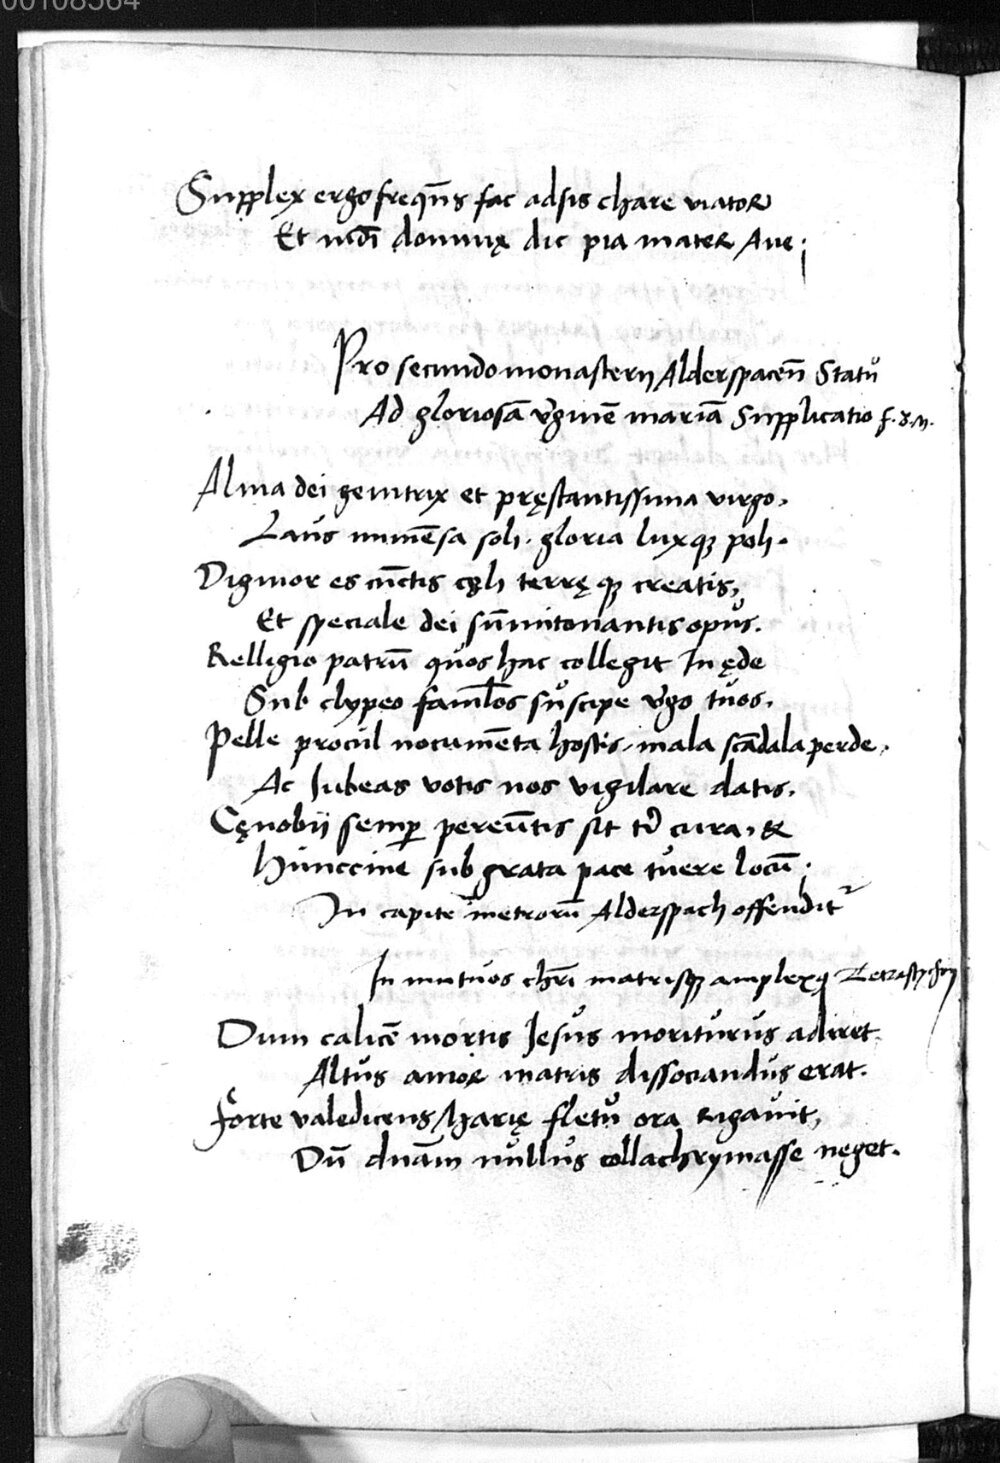 00108564
Supplex ergo frequens fac adsis chare viator
Et mūdi dominę dic pia mater Ave;
Pro secundo monasterij Alderspaceñ Statů
Ad gloriosā v̄ginē mariā Supplicatio f. 3. M.
Alma dei genitrix et pręstantissima virgo,
Laůs immēsa soli. gloria luxq; poli.
Dignior es cūctis cęli terrę q; creatis,
Et speciale dei sūmitonantis opůs.
Relligio patrū quos hac collegit In ęde
Sub clypeo famlos sůscipe v̄go tůos.
Pelle procůl nocumēta hostis, mala scādala perde,
Ac Iubeas votis nos vigilare datis.
Cęnobij semp̱ pereūtis sit t̄ cura, &
Hůnccine sub grata pace tůere locū;
In capite metrorū Alderspach offendit᷑
In mutůos chr̄i matrisq; amplexꝯ
Dum calicē mortis Jesůs moritůrůs adiret
Altůs amor matris dissociandůs erat.
Forte valedicens Marię fletů ora rigavit,
Dū dnām nůllůs collachrymasse neget.